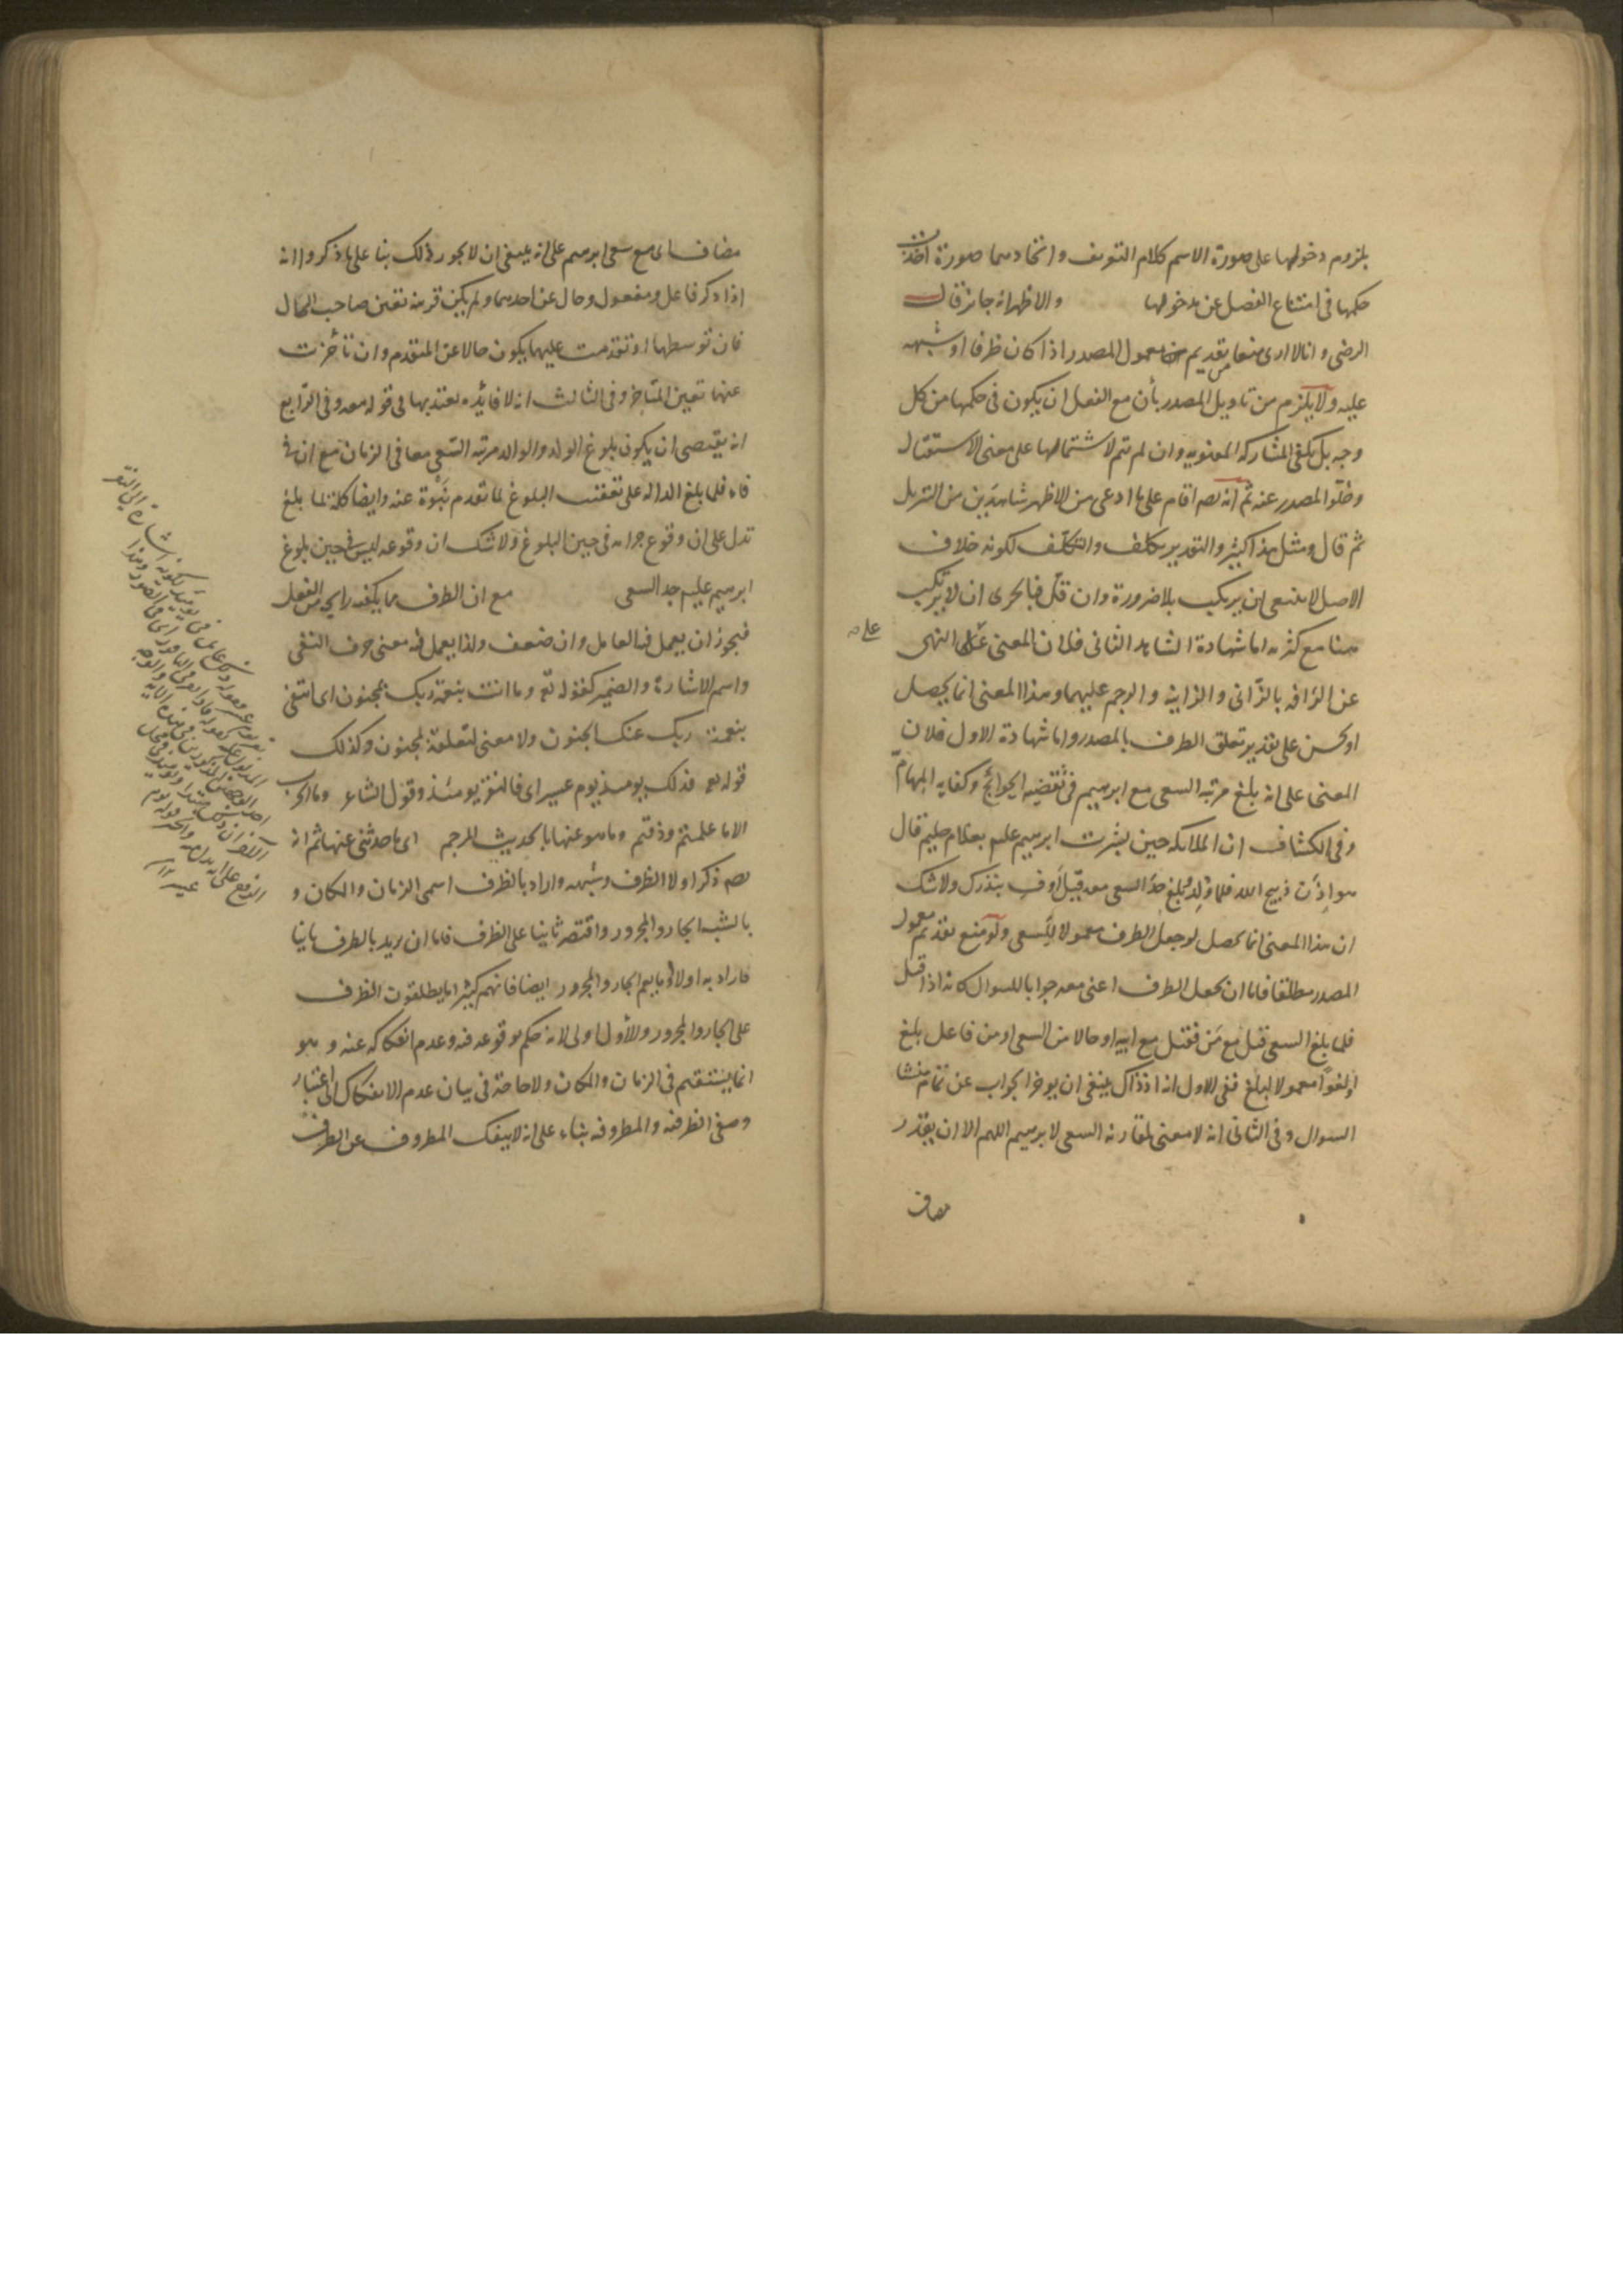 يلزم دخولها على صورة الاسم كلام التعريف واتحادهما صورة اخذت
حكمها فى امتناع الفصل عن مدخولها والاظهر انه جائز قال
الرضى وانا لا ارى منعا من تقديم معمول المصدر اذا كان ظرفا او شبهه
عليه ولا يلزم من تاويل المصدر بأن مع الفعل ان يكون فى حكمها من كل
وجه بل يكفى المشاركة المعنويه وان لم تتم لاشتمالها على معنى الاستقبال
وخلو المصدر عنه ثم انه اقام على ما ادعى من الاظهر شاهدين من التنزيل
ثم قال ومثل هذا كثير والتقدير تكلف والتكلف لكونه خلاف
الاصل لا ينبغى ان يرتكب بلا ضرورة وان قل فبالحرى ان لا يرتكب
هنا مع كثرته اما شهادة الشاهد الثانى فلان المعنى على النهى
عن الرافه بالزانى والزانية والرحم عليهما وهذا المعنى انما يحصل
او يحسن على تقدير تعلق الظرف بالمصدر واما شهادة الاول فلان
المعنى على انه بلغ مرتبه السعى مع ابرهيم فى تقضيه الحوائج وكفايه المهام
وفى الكشاف ان الملائكه حين بشرت ابرهيم عليه بغلام حليم قال
هو اذن ذبيح الله فلما ولد وبلغ حد السعى معه قيل اوف بنذرك ولا شك
ان هذا المعنى انما يحصل لو جعل الظرف معمولا للسعى ولو منع تقديم معمول
المصدر مطلقا فاما ان يجعل الظرف اعنى معه جوابا للسوال كانه اذا قيل
فلما بلغ السعى قيل مع من فقيل مع ابيه او حالا من السعى او من فاعل بلغ
او لغوا معمولا لبلغ ففى الاول انه اذ ذاك ينبغى ان يوخر الجواب عن تمام منشا
السوال وفى الثانى انه لا معنى لمقارنه السعى لابرهيم اللهم الا ان يقدر
مضاف
مضاف اى مع سعى ابرهيم على انه ينبغى ان لا يجوز ذلك بنا على ما ذكروا انه
اذا ذكر فاعل ومفعول وحال عن احدهما ولم يكن قرينه تعين صاحب الحال
فان توسطها او تقدمت عليهما يكون حالا عن المتقدم وان تأخرت
عنها تعين المتاخر وفى الثالث انه لا فائده يعتد بها فى قوله معه وفى الرابع
انه يقتضى ان يكون بلوغ الولد والوالد مرتبه السعى معا فى الزمان مع ان فى
فاء فلما بلغ الداله على تعقب البلوغ لما تقدم نبوة عنه وايضا كلمة لما بلغ
تدل على ان وقوع جوابه فى حين البلوغ ولا شك ان وقوعه ليس فى حين بلوغ
ابرهيم عليه حد السعى مع ان الظرف مما يكفيه رايحه من الفعل
فيجوز ان يعمل فيه العامل وان ضعف ولذا يعمل فيه معنى حرف النفى
واسم الاشارة والضمير كقوله تع وما انت بنعمة ربك بمجنون اى انتفى
بنعمة ربك عنك الجنون ولا معنى لتعلقه لمجنون وكذلك
قوله تع فذلك يومئذ يوم عسير اى فالنقر يومئذ وقول الشاعر وما الحرب
الا ما علمتم وذقتم وما هو عنها بالحديث المرجم اى ما حدثنى عنها ثم انه
ذكر اولا الظرف وشبهه واراد بالظرف اسمى الزمان والمكان و
بالشبه الجار والمجرور واقتصر ثانيا على الظرف فاما ان يريد بالظرف ثانيا
ما اراد به اولا او ما يعم الجار والمجرور ايضا فانهم كثيرا ما يطلقون الظرف
على الجار والمجرور والاول اولى لانه حكم بوقوعه فيه وعدم انفكاكه عنه وهو
انما يستقيم فى الزمان والمكان ولا حاجة فى بيان عدم الانفكاك الى اعتبار
وصفى الظرفيه والمظروفيه بناء على انه لا ينفك المظروف عن الظرف